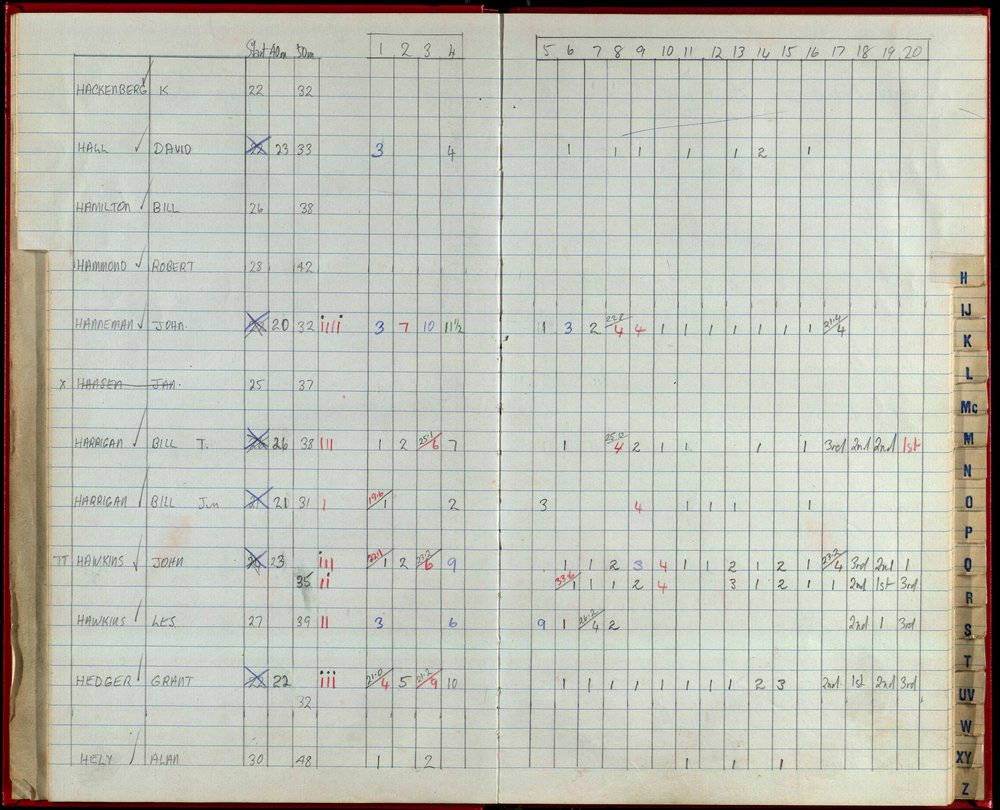 Start 40m 50m 1 2 3 4 5 6 7 8 9 10 11 12 13 14 15 16 17 18 19 20
HACKENBERG K 22 32
HALL DAVID 23 33 3 4 1 1 1 1 1 2 1
HAMILTON BILL 26 38
HAMMOND ROBERT 28 42
HANNEMAN JOHN 20 32 iiii 3 7 10 11½ 1 3 2 22.0/4 4 1 1 1 1 1 1 1 21.4/4
X HANSEN JAN. 25 37
HARRIGAN BILL T. 26 38 III 1 2 25.1/6 7 1 25.0/4 2 1 1 1 1 3rd 2nd 2nd 1st
HARRIGAN BILL Jun 21 31 1 19.6/1 2 3 4 1 1 1 1
TT HAWKINS JOHN 23 iii 22.1/1 2 23.2/6 9 1 1 2 3 4 1 1 2 1 2 1 23.2/4 3rd 2nd 1
35 ii 33.6/1 1 1 2 4 3 1 2 1 1 2nd 1st 3rd
HAWKINS LES. 27 39 II 3 6 9 1 26.2/4 2 2nd 1 3rd
HEDGER GRANT 22 iii 21.0/4 5 21.2/9 10 1 1 1 1 1 1 1 1 2 3 2nd 1st 2nd 3rd
32
HELY ALAN 30 48 1 2 1 1 1
H
IJ
K
L
Mc
M
N
O
P
Q
R
S
T
UV
W
XY
Z